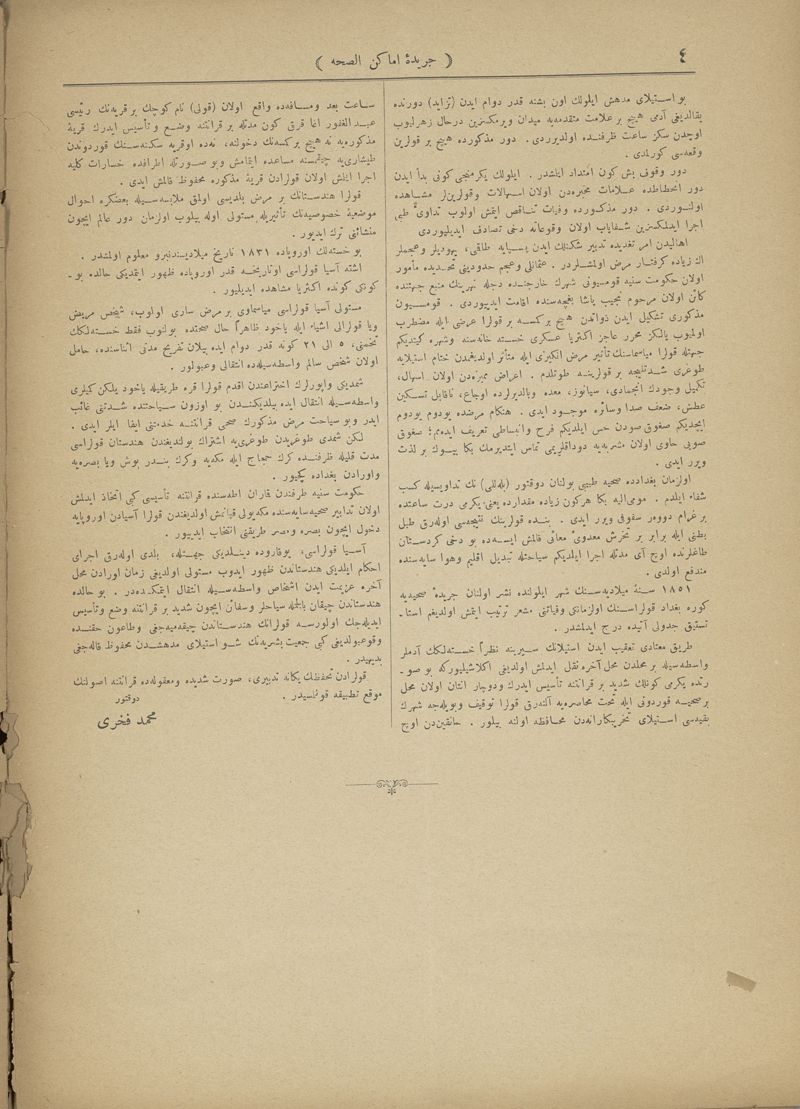 ٤
( جريدۀ اماكن الصحه )
بو استيلاى مدهش ايلولك اون بشنه قدر دوام ايدن (تزايد) دورنده
يقالديغى آدمى هيچ بر علامت متقدمه‌يه ميدان ويرمكسزين درحال زهرليوب
اوچدن سكز ساعت ظرفنده اولديرردى . دور مذكورده هيچ بر قولرين
وقعه‌سى كورلمدى .
دور وقوف بش كون امتداد ايلشدر . ايلولك يكرمنجى كونى بدأ ايدن
دور انحطاطده علامات مخبره‌دن اولان اسهالات وقولرين‌لر مشاهده
اولنوردى . دور مذكورده وفيات تناقص ايتمش اولوب تداوئ طبى
اجرا ايدلمكسزين شفاياب اولان وقوعاته دخى تصادف ايديليوردى
اهاليدن امر تغديده تدبير شكنلك ايدن بسبايه طاقى، يهوديلر وعجملر
اك زياده كرفتار مرض اولمشلردر . عثمانلى وعجم حدودينى تحديده مأمور
اولان حكومت سنيه قومسيونى شهرك خارجنده دجله نهرينك منبع جهتنده
كائن اولان مرحوم نجيب پاشا باغچه‌سنده اقامت ايدييوردى . قومسيون
مذكورى تشكيل ايدن ذواتدن هيچ بركسه بر قولرا عرضى ايله مضطرب
اولميوب يالكز محرر عاجز اكثريا عسكرى خسته خانه‌سنه وشهره كيتديكم
جهتله قولرا مياسماسنك تأثير مرض انكيزى ايله متأثر اولديغمدن ختام استيلايه
طوغرى شدتليجه بر قولرينه طوتلدم . اعراض مميزه‌دن اولان اسهال،
تكيل وجودك انجمادى، سيانوز، معده وبالديرلرده اوجاع، ناقابل تسكين
عطش، ضعف صدا وسائره موجود ايدى . هنكام مرضده يودوم يودوم
ايچديكم صغوق صودن حس ايلديكم فرح وانبساطى تعريف ايده‌مم؛ صغوق
صويى حاوى اولان مشربه‌يه دوداقلريمى تماس ايتديرمك بكا بيوك بر لذت
ويرر ايدى .
اولزمان بغدادده صحيه طبيبى بولنان دوقتور (بله‌للى) نك تداويسيله كسب
شفاء ايلدم . مومى‌اليه بكا هركون زياده مقدارده يعنى يكرمى درت ساعتده
بر غرام دووه‌ر سفوفى ويرر ايدى . بنده قولرينك نتيجه‌سى اوله‌رق طبل
بطنى ايله برابر بر تخرش معدوى معائى قالمش ايسه‌ده بو دخى كردستان
طاغلرنده اوچ آى مدتله اجرا ايلديكم سياحتله تبديل اقليم وهوا سايه‌سنده
مندفع اولدى .
١٨٥١ سنۀ ميلاديه‌سنك شهر ايلولنده نشر اولنان جريدۀ صحيه‌يه
كوره بغداد قولراسنك اولزمانى وفياتنى مشعر ترتيب ايتمش اولديغم استا-
تستيق جدولى آتيده درج ايدلمشدر .
طريق معتادى تعقيب ايدن استيلانك سيرينه نظراً خسته‌لكك آدملر
واسطه‌سيله بر محلدن محل آخره نقل ايدلمش اولديغى اكلاشيليوركه بو صو-
رتده يكرمى كونلك شديد بر قرانتنه تأسيس ايدرك ودوچار انتان اولان محل
بر صحيه قوردونى ايله تحت محاصره‌يه آلنه‌رق قولرا توقيف وبويله‌جه شهرك
بقيه‌سى استيلاى تخريبكارانه‌دن محافظه اولنه بيلور . خانقين‌دن اوچ
ساعت بعد ومسافه‌ده واقع اولان (قولى) نام كوچك بر قريه‌نك رئيسى
عبد الغفور اغا قرق كون مدتله بر قرانتنه وضع وتأسيس ايدرك قريۀ
مذكوره‌يه نه هيچ بركسه‌نك دخولنه، نه‌ده اوقريه سكنه‌سنك قوردوندن
طيشارى‌يه چيقمسنه مساعده ايتمامش وبو صورتله اطرافده خسارات كليه
اجرا ايتمش اولان قولرادن قريۀ مذكوره محفوظ قالمش ايدى .
قولرا هندستانك بر مرض بلديسى اولمق ملابسه‌سيله بعضكره احوال
موضعيۀ خصوصيه‌نك تأثيريله مستولى اوله بيلوب اولزمان دور عالم ايچون
منشائنى ترك ايديور .
بو خسته‌لك اوروپاده ١٨٣١ تاريخ ميلاديسندنبرو معلوم اولمشدر .
اشته آسيا قولراسى اوتاريخه قدر اوروپاده ظهور ايتمديكى حالده بو-
كونكى كونده اكثريا مشاهده ايديليور .
مستولى آسيا قولراسى مياسماوى بر مرض سارى اولوب، شخص مريض
ويا قولرالى اشياء ايله ياخود ظاهراً حال صحتده بولنوب فقط خسته‌لكك
تخمنى، ٥ الى ٢١ كونه قدر دوام ايده بيلان تفريخ مدتى اثناسنده، حامل
اولان شخص سالم واسطه‌سيله‌ده انتقالى وعبولور .
شمديكى واپورلرك اختراعندن اقدم قولرا قره طريقيله ياخود يلكن كميلرى
واسطه‌سيله انتقال ايده بيلديكندن بو اوزون سياحتده شدتنى غائب
ايدر وبو سياحت مرض مذكورك صحى قرانتنه خدمتنى ايفا ايلر ايدى .
لكن شمدى طوغريدن طوغرى‌يه اشتراك بولديغندن هندستان قولراسى
مدت قليله ظرفنده كرك حجاج ايله مكه‌يه وكرك بندر بوش ويا بصره‌يه
واورادن بغداده كچيور .
حكومت سنيه طرفندن قاران اطه‌سنده قرانتنه تأسيسى كبى اتخاذ ايدلمش
اولان تدابير صحيه‌سايه‌سنده مكه‌يولى قپانمش اولديغندن قولرا آسيادن اوروپايه
دخول ايچون بصره ومصر طريقنى انتخاب ايدييور .
آسيا قولراسى، يوقاروده دينلديكى جهتله، بلدى اوله‌رق اجراى
احكام ايلديكى هندستاندن ظهور ايدوب مستولى اولديغى زمان اورادن محل
آخره عزيمت ايدن اشخاص واسطه‌سيله انتقال ايتمكده‌در . بو حالده
هندستاندن چيقان بالجمله سياحلر وسفائن ايچون شديد بر قرانتنه وضع وتأسيس
ايديله‌جك اولورسه قولرانك هندستاندن چيقه‌ميه‌جغى وطاعون حقنده
وقوعبولديغى كبى جمعيت بشريه‌نك شو استيلاى مدهشدن محفوظ قاله‌جغى
بديهيدر .
قولرادن تحفظك يكانه تدبيرى، صورت شديده ومعقوله‌ده قرانتنه اصولنك
موقع تطبيقه قونلمسيدر .
دوقتور
محمد فخرى